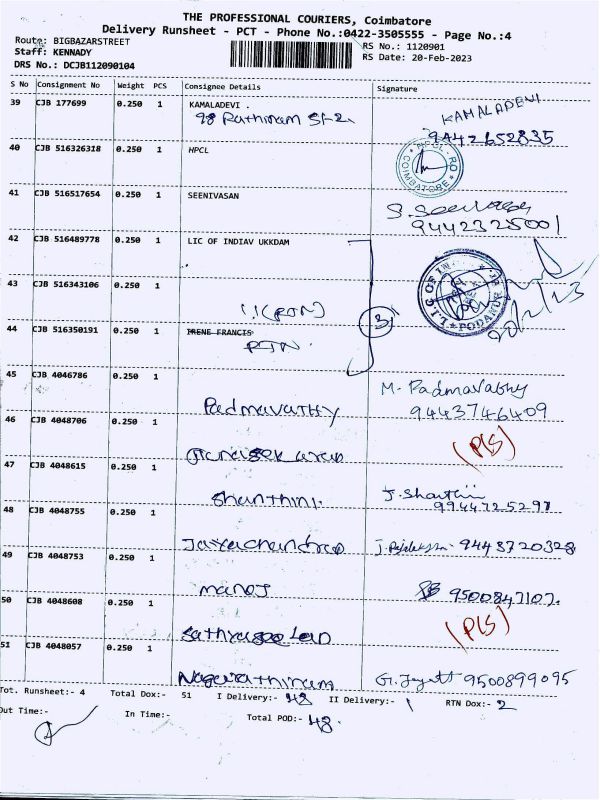 THE PROFESSIONAL COURIERS, Coimbatore
Delivery Runsheet - PCT - Phone No.:0422-3505555 - Page No.:4
Route: BIGBAZARSTREET
RS No.: 1120901
Staff: KENNADY
RS Date: 20-Feb-2023
DRS No.: DCJB112090104
S No Consignment No Weight PCS Consignee Details Signature
39 CJB 177699 0.250 1 KAMALADEVI . KAMALADEVI
98 Rathinam St-2 9442652835
40 CJB 516326318 0.250 1 HPCL
COIMBATORE
41 CJB 516517654 0.250 1 SEENIVASAN
9442325001
42 CJB 516489778 0.250 1 LIC OF INDIAV UKKDAM
43 CJB 516343106 0.250 1
3
44 CJB 516350191 0.250 1 IRENE FRANCIS
RTN.
45 CJB 4046786 0.250 1
Padmavathy M. Padmavathy
9443746409
46 CJB 4048706 0.250 1
(P/S)
47 CJB 4048615 0.250 1
Shanthini.
9944725297
48 CJB 4048755 0.250 1
Jayachandran 9443720328
49 CJB 4048753 0.250 1
manoj 9500847107.
50 CJB 4048608 0.250 1
(P/S)
51 CJB 4048057 0.250 1
Nagarathinam 9500899095
Tot. Runsheet:- 4 Total Dox:- 51 I Delivery:- 48 II Delivery:- 1 RTN Dox:- 2
Out Time:- In Time:- Total POD:- 48.